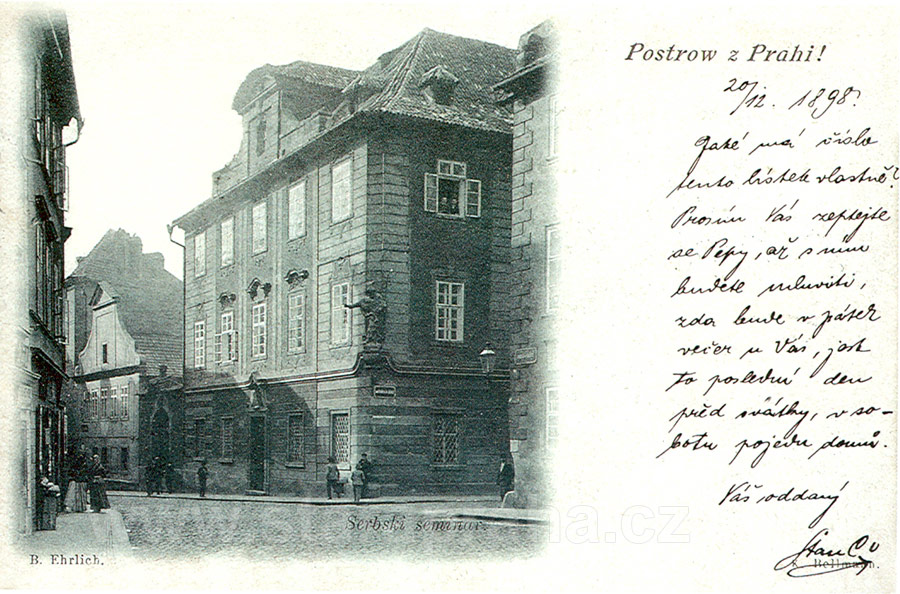 Postrow z Prahi!
20/12. 1898.
Jaké má číslo
tento lístek vlastně?
Prosím Vás zeptejte
se Pepy, až s ním
budete mluviti,
zda bude v pátek
večer u Vás, jest
to poslední den
před svátky, v so-
botu pojedu domů.
Váš oddaný
Serbski seminar.
B. Ehrlich.
Bellmann.